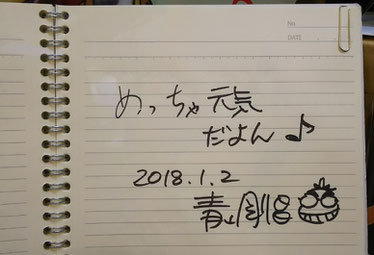 No.
DATE
めっちゃ元気
だよん♪
2018.1.2
青山剛昌